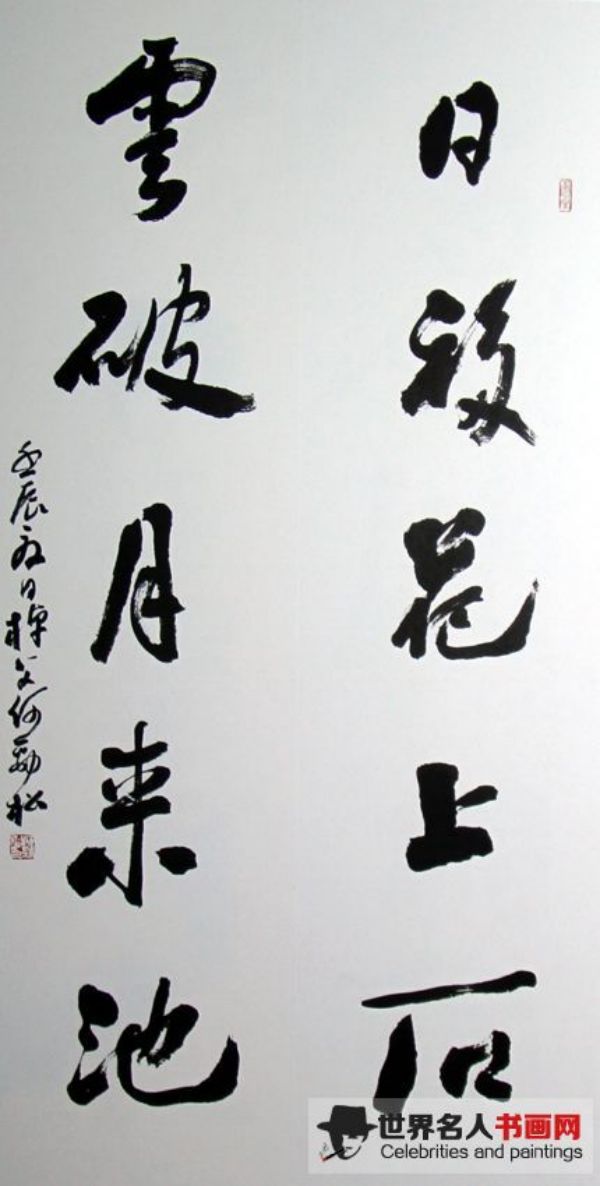 日移花上石
雲破月来池
壬辰夏日樟父何勁松
世界名人书画网
Celebrities and paintings